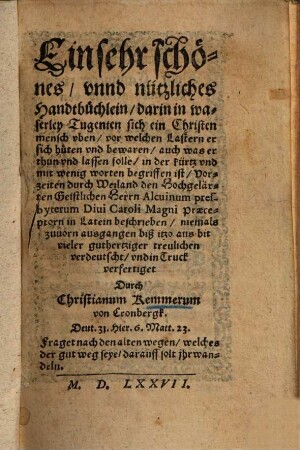 Ein sehr schö-
nes / vnnd nützliches
Handtbüchlein / darin in wa-
serley Tugenten sich ein Christen
mensch vben / vor welchen Lastern er
sich hüten vnd bewaren / auch was er
thun vnd lassen solle / in der kürtz vnd
mit wenig worten begriffen ist / Vor-
zeiten durch Weiland den Hochgelär-
ten Geistlichen Herrn Alcuinum pres-
byterum Diui Caroli Magni Præce-
ptorn in Latein beschrieben / niemals
zuuorn ausgangen biß itzo aus bit
vieler guthertziger treulichen
verdeutscht / vnd in Truck
verfertiget
Durch
Christianum Kemmerum
von Cronbergk.
Deut. 31. Hier. 6. Matt. 23.
Fraget nach den alten wegen / welches
der gut weg seye / darauff solt jhr wan-
deln.
M. D. LXXVII.